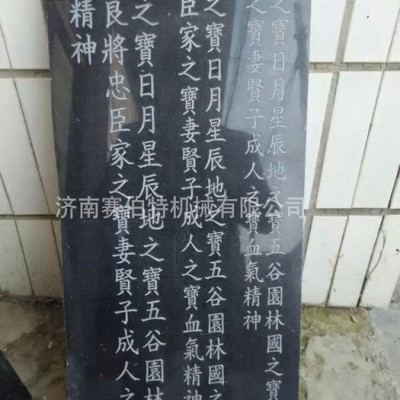 之寶日月星辰地之寶五谷園林國之寶
之寶妻賢子成人之寶血氣精神
之寶日月星辰地之寶五谷園林國之
臣家之寶妻賢子成人之寶血氣精神
之寶日月星辰地之寶五谷園林
良將忠臣家之寶妻賢子成人之
精神
济南赛伯特机械有限公司